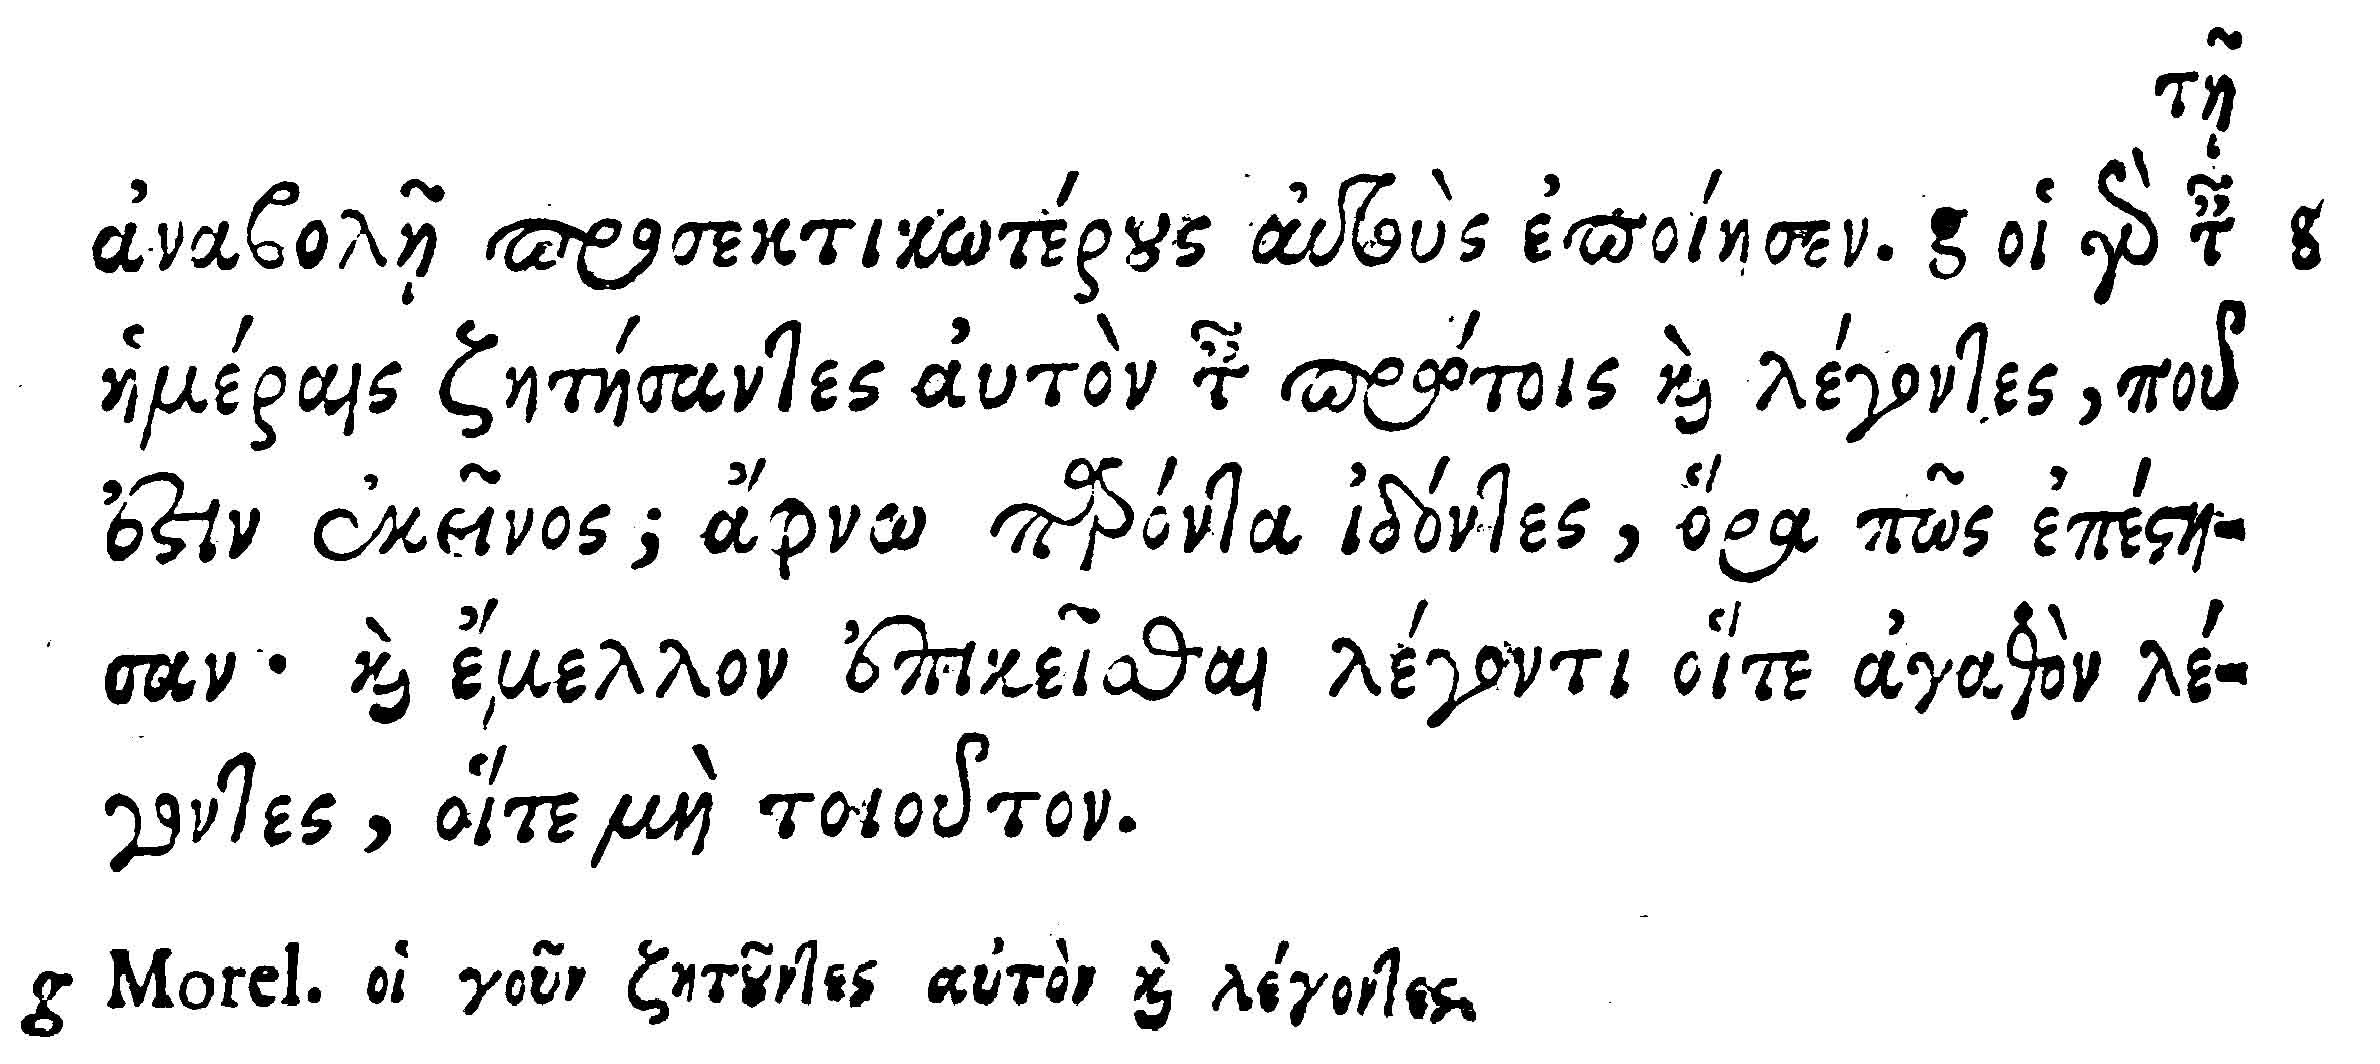 τῇ
ἀναβολῇ προσεκτικωτέρους αὐτοὺς ἐποίησεν. g οἱ γὰρ ταῖς g
ἡμέραις ζητήσαντες αὐτὸν ταῖς πρώτοις καὶ λέγοντες, ποῦ
ἐστιν ἐκεῖνος; ἄφνω παρόντα ἰδόντες, ὅρα πῶς ἐπέστη-
σαν· καὶ ἔμελλον ἐπικεῖσθαι λέγοντι οἵτε ἀγαθὸν λέ-
γοντες, οἵτε μὴ τοιοῦτον.
g Morel. οἱ γοῦν ζητοῦντες αὐτὸν καὶ λέγοντες.